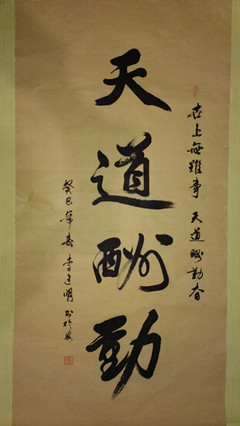 世上無難事 天道酬勤者
天道酬勤
癸巳年春 李 明 书於